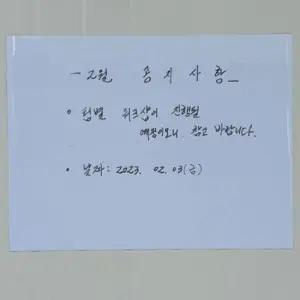 - 2월 공지사항 -
• 팀별 워크샵이 진행될
예정이오니 참고 바랍니다.
• 날짜 : 2023. 02. 03(금)